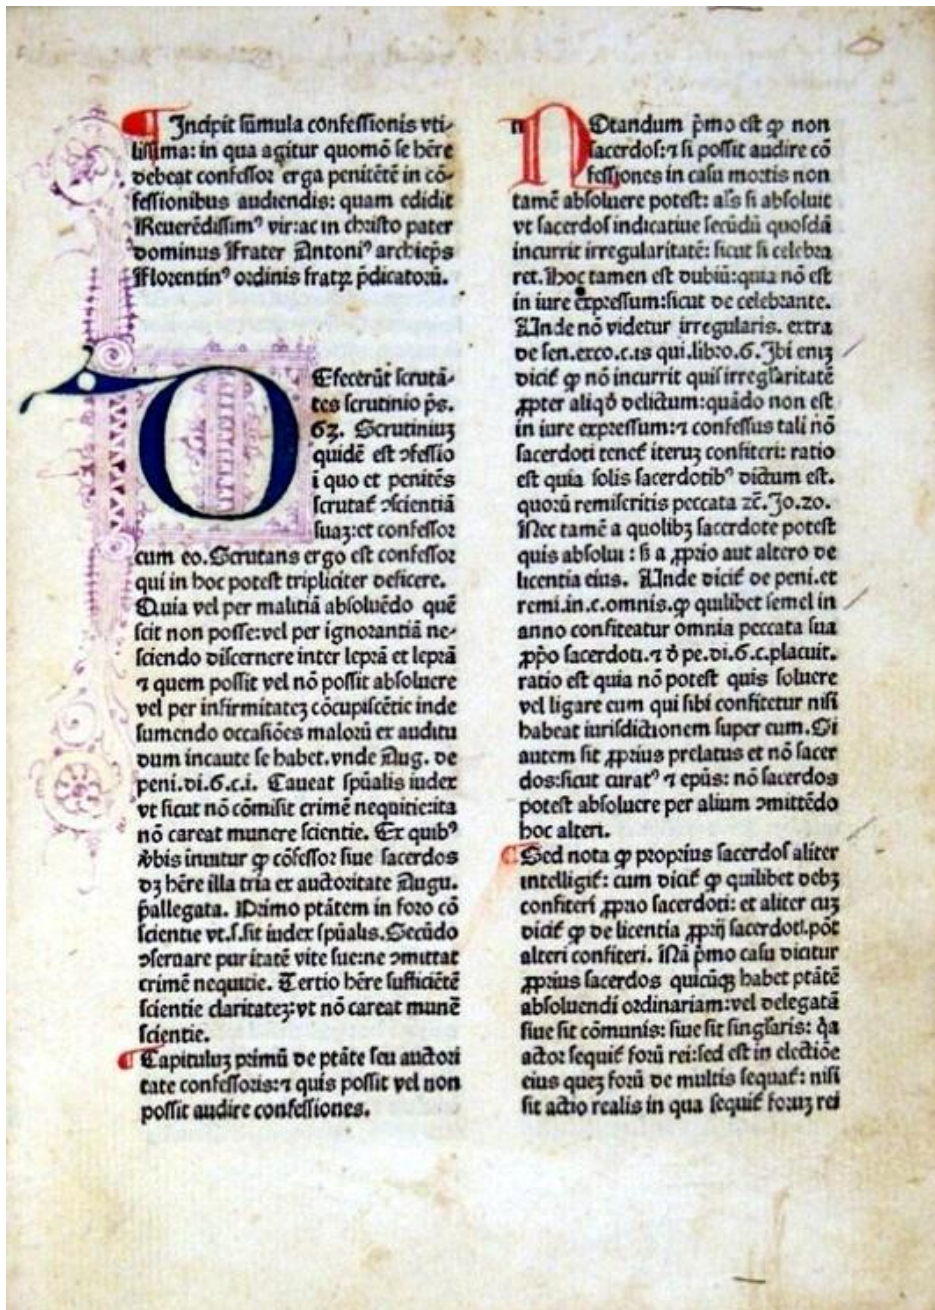 ¶ Incipit sũmula confessionis vti-
lissima: in qua agitur quomõ se hr̃e
debeat confessor erga penitẽtẽ in cõ-
fessionibus audiendis: quam edidit
Reuerẽdissimꝰ vir: ac in christo pater
dominus frater Antoniꝰ archiep̃s
florentinꝰ ordinis fratꝝ p̃dicatorũ.
DEfecerũt scrutã-
tes scrutinio p̃s.
63. Scrutiniuꝫ
quidẽ est ↄfessio
i quo et penitẽs
scrutat᷑ ↄscientiã
suaꝫ: et confessor
cum eo. Scrutans ergo est confessor
qui in hoc potest tripliciter deficere.
Quia vel per malitiã absoluẽdo quẽ
scit non posse: vel per ignorantiã ne-
sciendo discernere inter leprã et leprã
⁊ quem possit vel nõ possit absoluere
vel per infirmitateꝫ cõcupiscẽtie inde
sumendo occasiões malorũ ex auditu
dum incaute se habet. vnde Aug. de
peni. di. 6. c. i. Caueat sp̃ualis iudex
vt sicut nõ cõmisit crimẽ nequitie: ita
nõ careat munere scientie. Ex quibꝰ
v̾bis inuitur ꝙ cõfessor siue sacerdos
dꝫ hr̃e illa tria ex auctoritate Augu.
p̃allegata. Primo ptãtem in foro cõ
scientie vt. s. sit iudex sp̃ualis. Secũdo
ↄseruare puritatẽ vite sue: ne ↄmittat
crimẽ nequitie. Tertio hr̃e sufficiẽtẽ
scientie claritateꝫ: vt nõ careat munẽ
scientie.
¶ Capituluꝫ primũ de ptãte seu auctori
tate confessoris: ⁊ quis possit vel non
possit audire confessiones.
NOtandum p̃mo est ꝙ non
sacerdos: ⁊ si possit audire cõ
fessiones in casu mortis non
tamẽ absoluere potest: als̃ si absoluit
vt sacerdos indicatiue secũdũ quosdã
incurrit irregularitatẽ: sicut si celebra
ret. Hoc tamen est dubiũ: quia nõ est
in iure expressum: sicut de celebrante.
Unde nõ videtur irregularis. extra
de sen. exco. c. is qui. libro. 6. Ibi eniꝫ
dicit᷑ ꝙ nõ incurrit quis irregl̃aritatẽ
ꝓpter aliqđ delictum: quãdo non est
in iure expressum: ⁊ confessus tali nõ
sacerdoti tenet᷑ iteruꝫ confiteri: ratio
est quia solis sacerdotibꝰ dictum est.
quorũ remiseritis peccata ⁊c̃. Jo. 20.
Nec tamẽ a quolibꝫ sacerdote potest
quis absolui: si a ꝓprio aut altero de
licentia eius. Unde dicit᷑ de peni. et
remi. in. c. omnis. ꝙ quilibet semel in
anno confiteatur omnia peccata sua
ꝓp̃o sacerdoti. ⁊ đ pe. di. 6. c. placuit.
ratio est quia nõ potest quis soluere
vel ligare eum qui sibi confitetur nisi
habeat iurisdictionem super eum. Si
autem sit ꝓprius prelatus et nõ sacer
dos: sicut curatꝰ ⁊ ep̃us: nõ sacerdos
potest absoluere per alium ↄmittẽdo
hoc alteri.
¶ Sed nota ꝙ proprius sacerdos aliter
intelligit᷑: cum dicit᷑ ꝙ quilibet debꝫ
confiteri ꝓprio sacerdoti: et aliter cuꝫ
dicit᷑ ꝙ de licentia ꝓprij sacerdoti. põt
alteri confiteri. Nã p̃mo casu dicitur
ꝓprius sacerdos quicũqꝫ habet ptãtẽ
absoluendi ordinariam: vel delegatã
siue sit cõmunis: siue sit singl̃aris: q̃a
actor sequit᷑ forũ rei: sed est in electiõe
eius queꝫ forũ de multis sequat᷑: nisi
sit actio realis in qua sequit᷑ foruꝫ rei